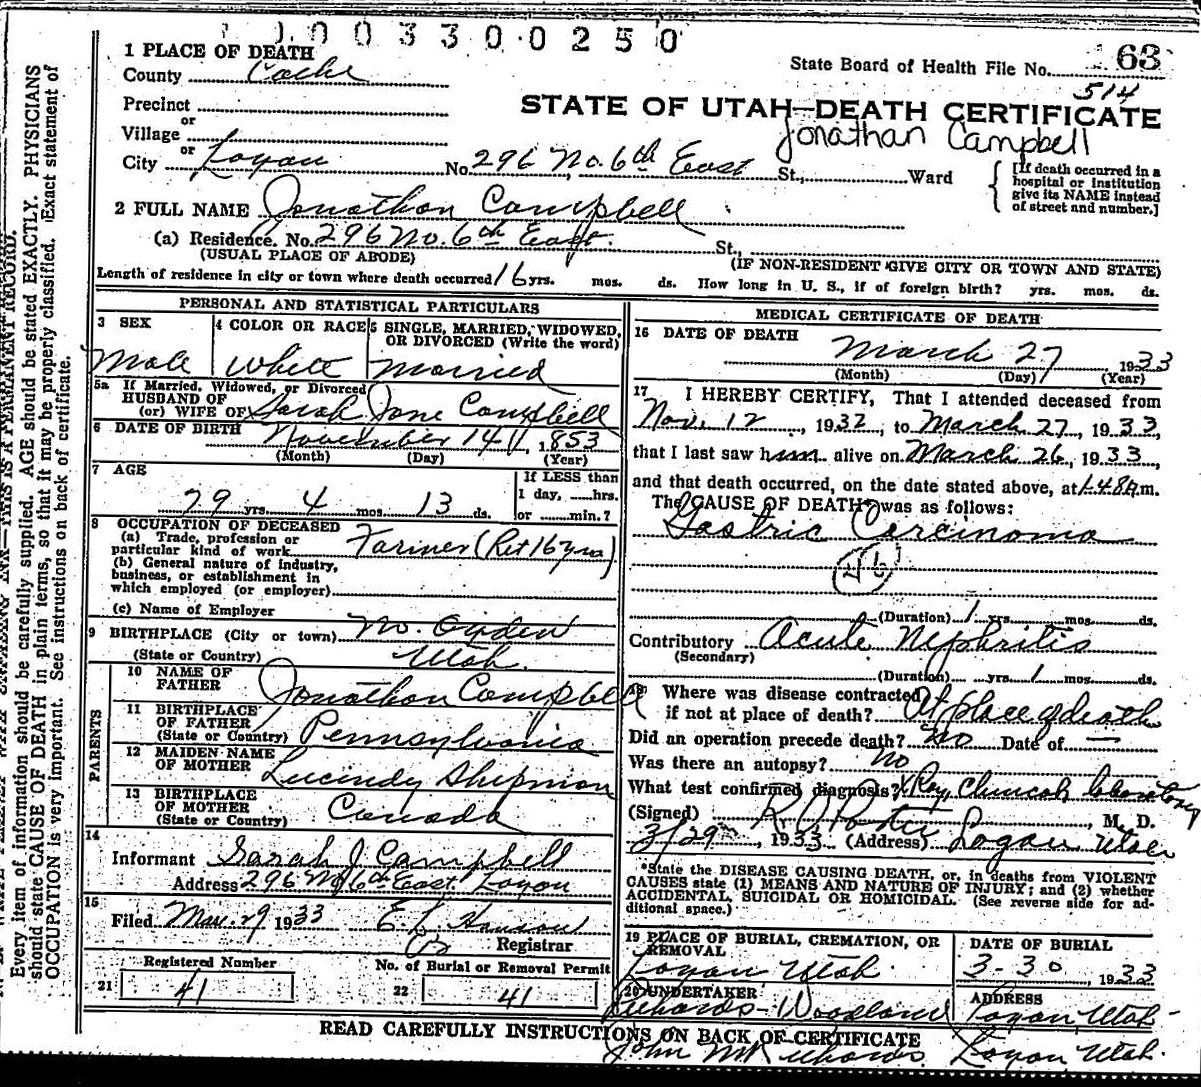 1 0 0 3 3 0 0 2 5 0
1 PLACE OF DEATH
County Cache
Precinct
or
Village
or
City Logan No. 296 No. 6th East St., Ward
State Board of Health File No. 63
514
STATE OF UTAH—DEATH CERTIFICATE
Jonathan Campbell
[If death occurred in a
hospital or institution
give its NAME instead
of street and number.]
2 FULL NAME Jonathan Campbell
(a) Residence. No. 296 No. 6th East. St.,
(USUAL PLACE OF ABODE) (IF NON-RESIDENT GIVE CITY OR TOWN AND STATE)
Length of residence in city or town where death occurred 16 yrs. mos. ds. How long in U. S., if of foreign birth? yrs. mos. ds.
PERSONAL AND STATISTICAL PARTICULARS
3 SEX 4 COLOR OR RACE 5 SINGLE, MARRIED, WIDOWED,
OR DIVORCED (Write the word)
Male White Married
5a If Married, Widowed, or Divorced
HUSBAND OF
(or) WIFE OF Sarah Jane Campbell
6 DATE OF BIRTH November 14, 1853
(Month) (Day) (Year)
7 AGE If LESS than
1 day, hrs.
79 yrs. 4 mos. 13 ds. or min.?
8 OCCUPATION OF DECEASED
(a) Trade, profession or
particular kind of work Farmer (Ret 16 yrs)
(b) General nature of industry,
business, or establishment in
which employed (or employer)
(c) Name of Employer
9 BIRTHPLACE (City or town) No. Ogden
(State or Country) Utah.
PARENTS
10 NAME OF
FATHER Jonathan Campbell
11 BIRTHPLACE
OF FATHER
(State or Country) Pennsylvania
12 MAIDEN NAME
OF MOTHER Lucindy Shipman
13 BIRTHPLACE
OF MOTHER
(State or Country) Canada
14
Informant Sarah J. Campbell
Address 296 No 6th East. Logan
15
Filed Mar. 29 1933 E. L. Hanson
Registrar
Registered Number No. of Burial or Removal Permit
21 41 22 41
MEDICAL CERTIFICATE OF DEATH
16 DATE OF DEATH
March 27 1933
(Month) (Day) (Year)
17 I HEREBY CERTIFY, That I attended deceased from
Nov. 12, 1932, to March 27, 1933,
that I last saw him alive on March 26, 1933,
and that death occurred, on the date stated above, at 1:48 A.m.
The CAUSE OF DEATH was as follows:
Gastric Carcinoma
46
(Duration) 1 yrs. mos. ds.
Contributory Acute Nephritis
(Secondary)
(Duration) yrs. 1 mos. ds.
18 Where was disease contracted
if not at place of death? At place of death
Did an operation precede death? No Date of —
Was there an autopsy? No
What test confirmed diagnosis? X Ray, Clinical, laboratory
(Signed) R. O. Porter, M. D.
3/29, 1933 (Address) Logan Utah
*State the DISEASE CAUSING DEATH, or, in deaths from VIOLENT
CAUSES state (1) MEANS AND NATURE OF INJURY; and (2) whether
ACCIDENTAL, SUICIDAL OR HOMICIDAL. (See reverse side for ad-
ditional space.)
19 PLACE OF BURIAL, CREMATION, OR
REMOVAL
Logan Utah.
DATE OF BURIAL
3-30 1933
20 UNDERTAKER
Richards-Woodland
ADDRESS
Logan, Utah-
READ CAREFULLY INSTRUCTIONS ON BACK OF CERTIFICATE
John M Richards Logan Utah.
Every item of information should be carefully supplied. AGE should be stated EXACTLY. PHYSICIANS
should state CAUSE OF DEATH in plain terms, so that it may be properly classified. Exact statement of
OCCUPATION is very important. See instructions on back of certificate.